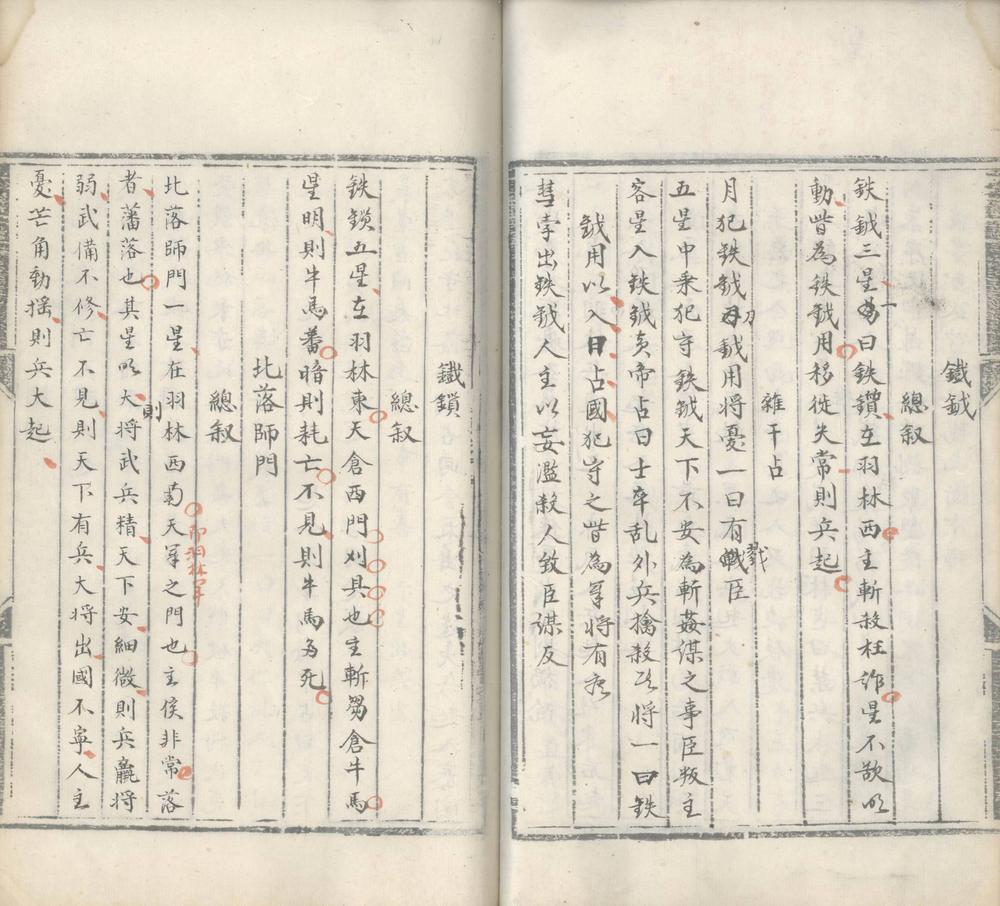 鐵鉞
總叙
鈇鉞三星一曰鈇鑕在羽林西主斬殺枉詐星不欲明
動皆為鈇鉞用移徙失常則兵起
雜干占
月犯鈇鉞刀鉞用將憂一曰有戮臣
五星中乗犯守鈇鉞天下不安為斬姦謀之事臣叛主
客星入鈇鉞黃帝占曰士卒乱外兵擒殺
將一曰鈇
鉞用以入日占國犯守之皆為軍將有
彗孛出鈇鉞人主以妄濫殺人致臣謀反
鐵鎖
總叙
鈇鎖五星在羽林東天倉西門刈具也主斬芻倉牛馬
星明則牛馬蕃暗則耗亡不見則牛馬多死
北落師門
總叙
北落師門一星在羽林西南天軍之門也主侯非常落
即羽林軍
者藩落也其星明大則將武兵精天下安細微則兵羸將
弱武備不修亡不見則天下有兵大将出國不寧人主
憂芒角動摇則兵大起